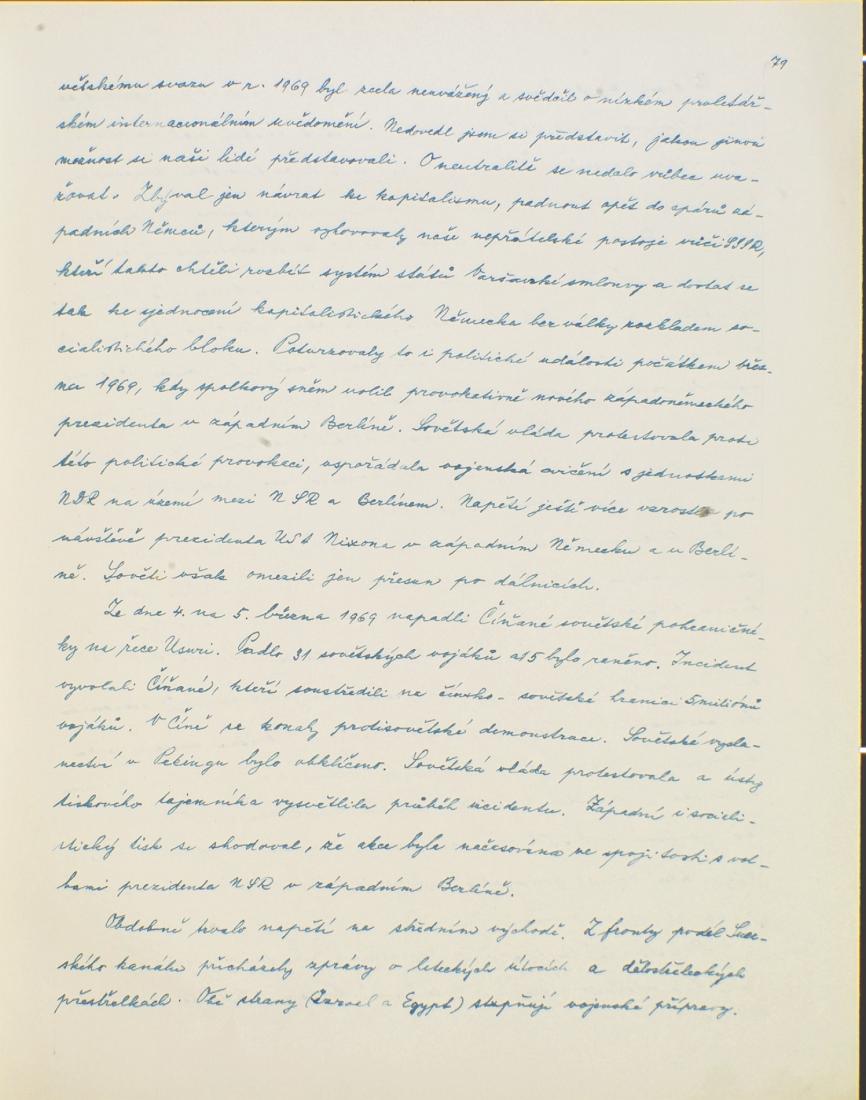 79
větskému svazu v r. 1969 byl zcela neuvážený a svědčil o nízkém proletář-
ském internacionálním uvědomění. Nedovedl jsem si představit, jakou jinou
možnost si naši lidé představovali. O neutralitě se nedalo vůbec uva-
žovat. Zbýval jen návrat ke kapitalismu, padnout opět do spárů zá-
padních Němců, kterým vyhovovaly naše nepřátelské postoje vůči SSSR,
kteří takto chtěli rozbít systém států Varšavské smlouvy a dostat se
tak ke sjednocení kapitalistického Německa bez války rozkladem so-
cialistického bloku. Potvrzovaly to i politické události počátkem břez-
na 1969, kdy spolkový sněm volil provokativně nového západoněmeckého
prezidenta v západním Berlíně. Sovětská vláda protestovala proti
této politické provokaci, uspořádala vojenská cvičení s jednotkami
NDR na území mezi NSR a Berlínem. Napětí ještě více vzrostlo po
návštěvě prezidenta USA Nixona v západním Německu a v Berlí-
ně. Sověti však omezili jen přesun po dálnicích.
Ze dne 4. na 5. března 1969 napadli Číňané sovětské pohraniční-
ky na řece Usuri. Padlo 31 sovětských vojáků a 15 bylo raněno. Incident
vyvolali Číňané, kteří soustředili na čínsko-sovětské hranici 5 miliónů
vojáků. V Číně se konaly protisovětské demonstrace. Sovětské vysla-
nectví v Pekingu bylo obklíčeno. Sovětská vláda protestovala a ústy
tiskového tajemníka vysvětlila průběh incidentu. Západní i sociali-
stický tisk se shodoval, že akce byla načasována ve spojitosti s vol-
bami prezidenta NSR v západním Berlíně.
Obdobně trvalo napětí na středním východě. Z fronty podél Suez-
ského kanálu přicházely zprávy o leteckých útocích a dělostřeleckých
přestřelkách. Obě strany (Izrael a Egypt) stupňují vojenské přípravy.